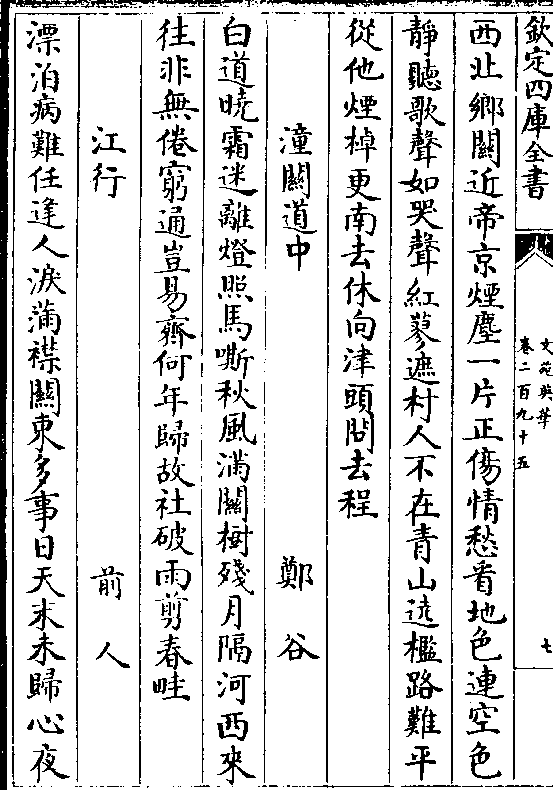 欽定四庫全書
文苑英華
卷二百九十五
七
西北鄉關近帝京煙塵一片正傷情愁看地色連空色
靜聽歌聲如哭聲紅蓼遮村人不在青山遶檻路難平
從他煙棹更南去休向津頭問去程
潼關道中 鄭谷
白道曉霜迷離燈照馬嘶秋風滿關樹殘月隔河西來
往非無倦窮通豈易齊何年歸故社破雨剪春畦
江行 前人
漂泊病難任逢人淚滿襟關東多事日天末未歸心夜